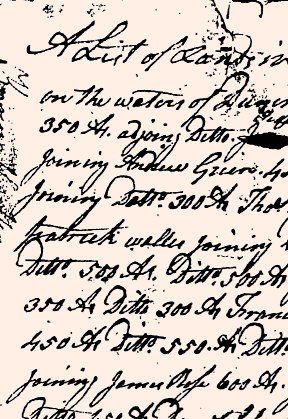 A List of Lands in
on the waters of
350 As. adjoing Ditto.
Joining Andrew Green. 40
Joining Ditto. 300 As Thos
Patrick waller Joining
Ditto. 500 As. Ditto. 500 As
350 As Ditto 300 As Franc
450 As Ditto. 550. As Ditto
Joining James Rose 600 As.
Ditto 450 As